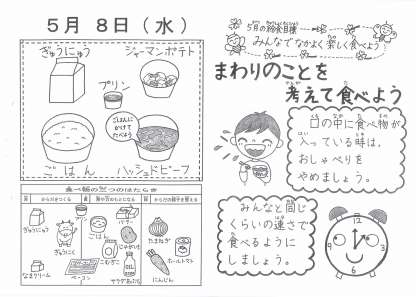 5月 8日(水)
ぎゅうにゅう
ジャーマンポテト
プリン
ごはんに
かけて
たべよう
ごはん
ハッシュドビーフ
食べ物の三つのはたらき
赤
からだをつくる
黄
熱や力のもとになる
緑
からだの調子を整える
ぎゅうにゅう
ぎゅうにく
なまクリーム
ベーコン
バター
ごはん
じゃがいも
こむぎこ
サラダあぶら
たまねぎ
ホールトマト
にんじん
5月の給食目標
みんなでなかよく楽しく食べよう
まわりのことを
考えて食べよう
口の中に食べ物が
入っている時は、
おしゃべりを
やめましょう。
みんなと同じ
くらいの速さで
食べるように
しましょう。
12
3
6
9